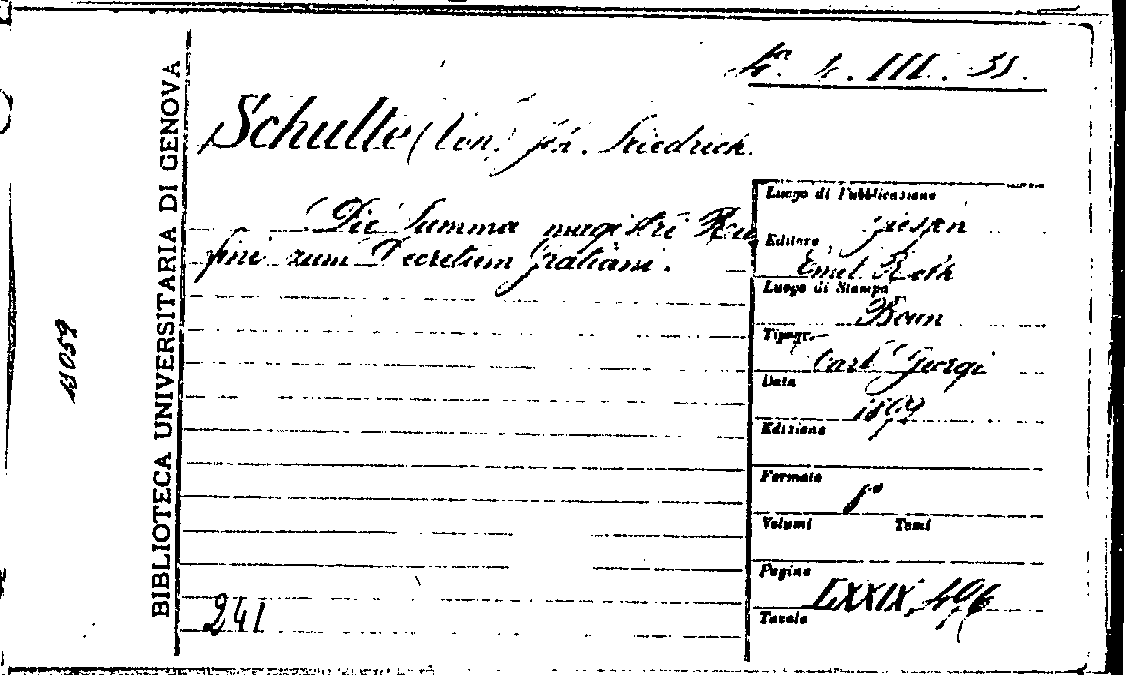 4. III. 33.
Schulte (Von) Joh. Friedrich.
Die Summa magistri Ru
fini zum Decretum Gratiani.
Luogo di Pubblicazione
Giessen
Editore
Emil Roth
Luogo di Stampa
Bonn
Tipogr.
Carl Georgi
Data
1892
Edizione
Formato
8°
Volumi Tomi
Pagine
LXXIX, 496
Tavole
241
BIBLIOTECA UNIVERSITARIA DI GENOVA